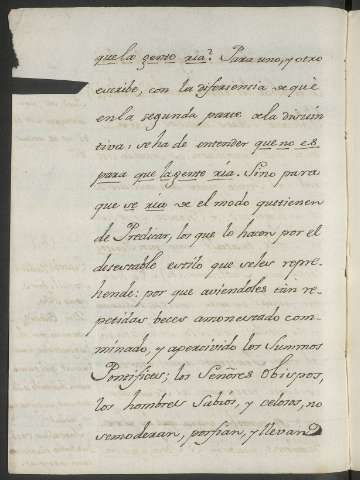 que la gente ria? Para uno, y otro
escribe, con la diferiencia de què
en la segunda parte de la disiún
tiva: se ha de entender que no es
para que la gente ria. Sino para
que se ria de el modo qutienen
de Predicar, los que lo hacen por el
detestable estilo que seles repre-
hende: por que aviendoles tan re-
petidas beces amonestado com-
minado, y apercivido los Summos
Pontifices; los Señores Obispos,
los hombres Sabios, y celosos, no
semoderan, porfian, y llevan